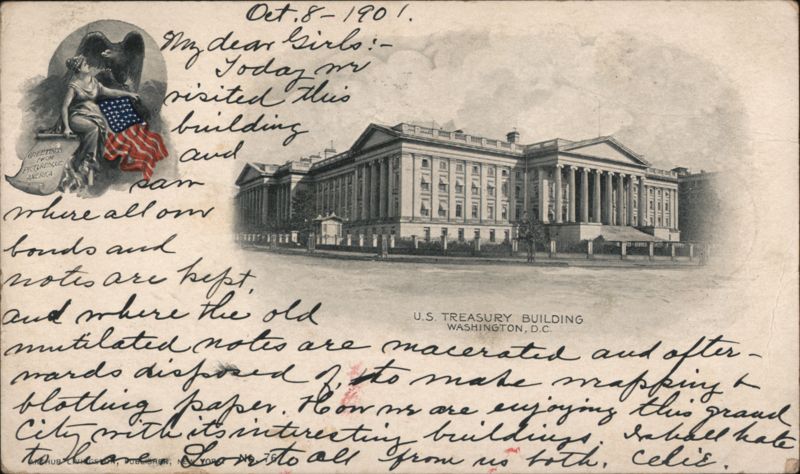 Oct. 8 - 1901.
My dear Girls:-
Today we
visited this
building
and
saw
where all our
bonds and
notes are kept,
and where the old
mutilated notes are macerated and after-
wards disposed of, to make wrapping &
blotting paper. How we are enjoying this grand
City with its interesting buildings. I shall hate
to leave. Love to all from us both. Celie.
GREETINGS
FROM
PICTURESQUE
AMERICA
U.S. TREASURY BUILDING
WASHINGTON, D.C.
ARTHUR LIVINGSTON, PUBLISHER, NEW YORK No 76